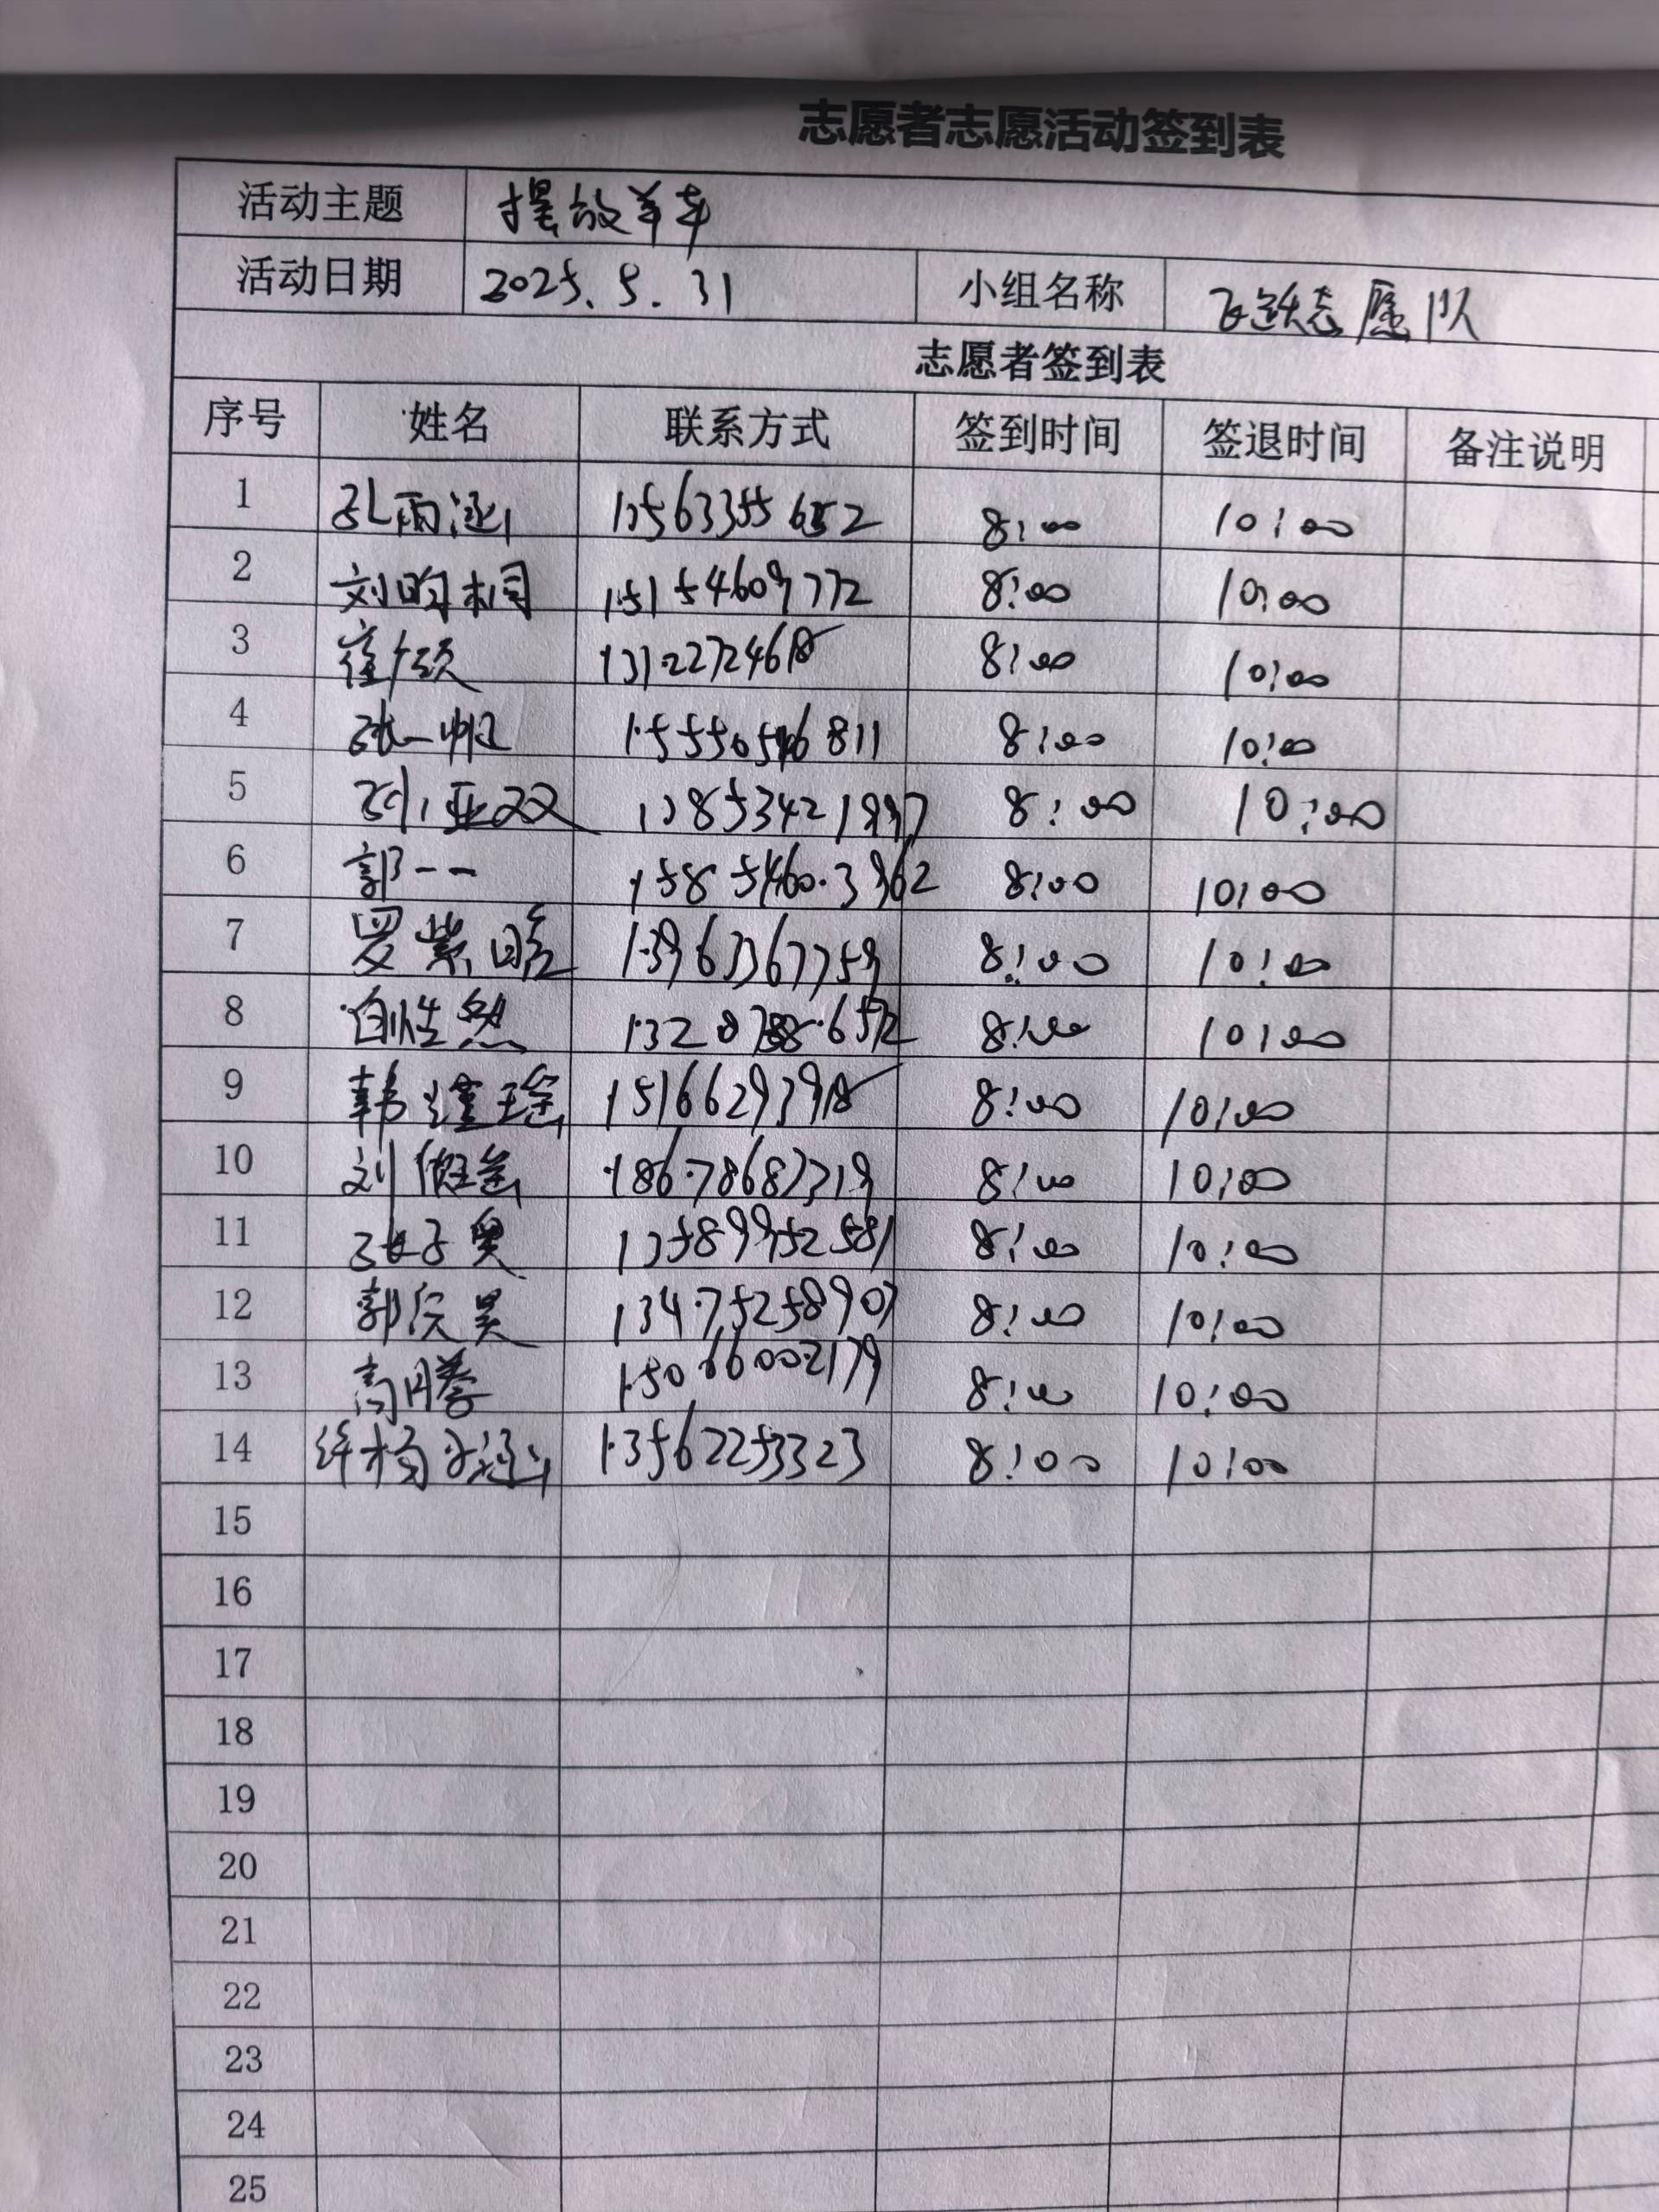 志愿者志愿活动签到表
活动主题 摆放单车
活动日期 2025.5.31 小组名称 飞跃志愿队
志愿者签到表
序号 姓名 联系方式 签到时间 签退时间 备注说明
1 孔雨涵 8:00 10:00
2 刘昀桐 15154609772 8:00 10:00
3 8:00 10:00
4 张一帆 8:00 10:00
5 8:00 10:00
6 郭一一 15854603362 8:00 10:00
7 罗紫晗 13963367759 8:00 10:00
8 8:00 10:00
9 韩瑾瑶 8:00 10:00
10 刘 18678687319 8:00 10:00
11 张子奥 8:00 10:00
12 郭 昊 13475258907 8:00 10:00
13 高 15066002179 8:00 10:00
14 13562253323 8:00 10:00
15
16
17
18
19
20
21
22
23
24
25